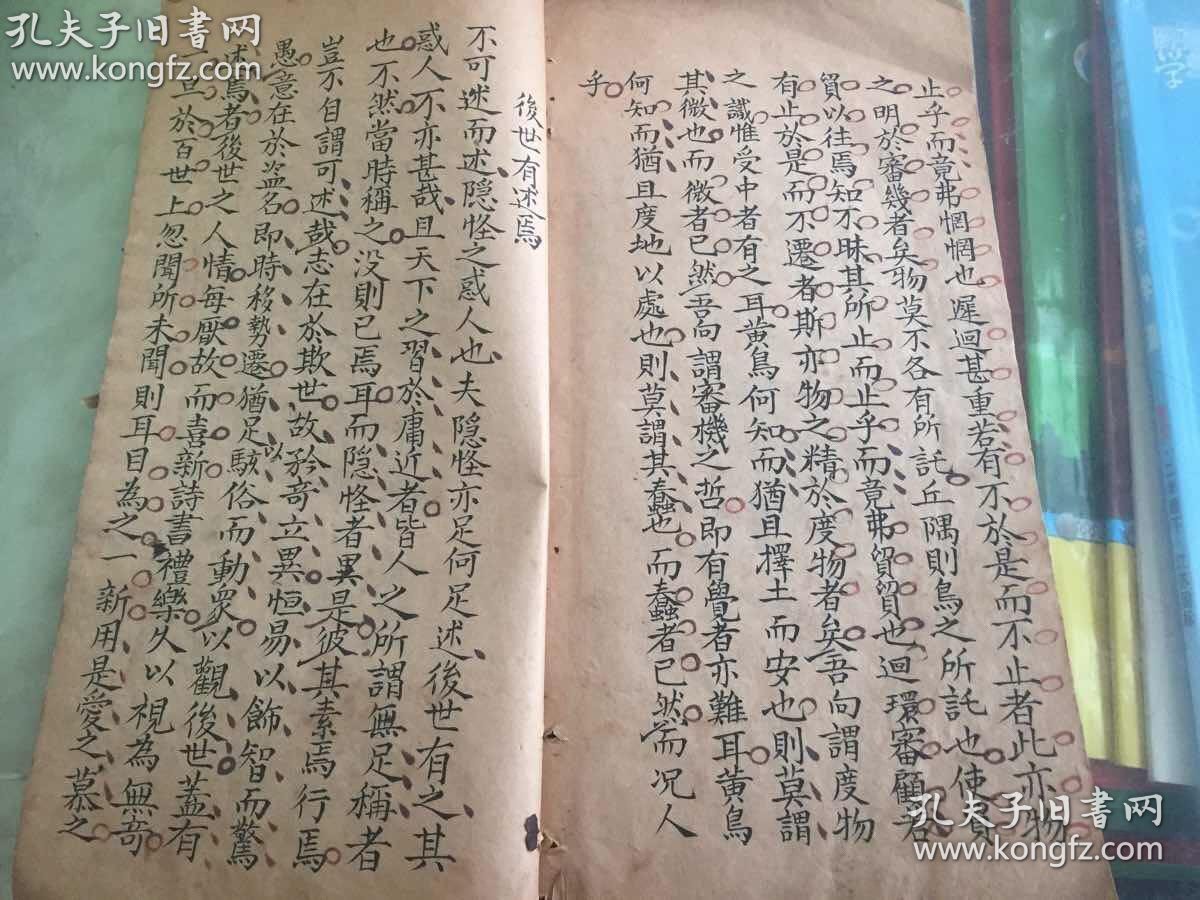 止乎而竟弗惘惘也遲迴甚重若有不於是而不止者此亦物
之明於審幾者矣物莫不各有所託丘隅則鳥之所託也使貿
貿以往焉知不昧其所止而止乎而竟弗貿貿也迴環審顧若
有止於是而不遷者斯亦物之精於度物者矣吾向謂度物
之識惟受中者有之耳黃鳥何知而猶且擇土而安也則莫謂
其微也而微者已然吾向謂審機之哲即有覺者亦難耳黃鳥
何知而猶且度地以處也則莫謂其蠢也而蠢者已然而況人
乎
後世有述焉
不可述而述隐怪之惑人也夫隐怪亦足何足述後世有之其
惑人不亦甚哉且天下之習於庸近者皆人之所謂無足稱者
也不然當時稱之没則已焉耳而隐怪者異是彼其素焉行焉
豈不自謂可述哉志在於欺世故矜竒立異恒易以飾智而驚
愚意在於盗名即時移勢遷猶足以駭俗而動衆以觀後世蓋有
述焉者後世之人情每厭故而喜新詩書禮樂久以視為無竒
一旦於百世上忽聞所未聞則耳目為之一新用是愛之慕之
孔夫子旧书网
www.kongfz.com
孔夫子旧书网
www.kongfz.com
学